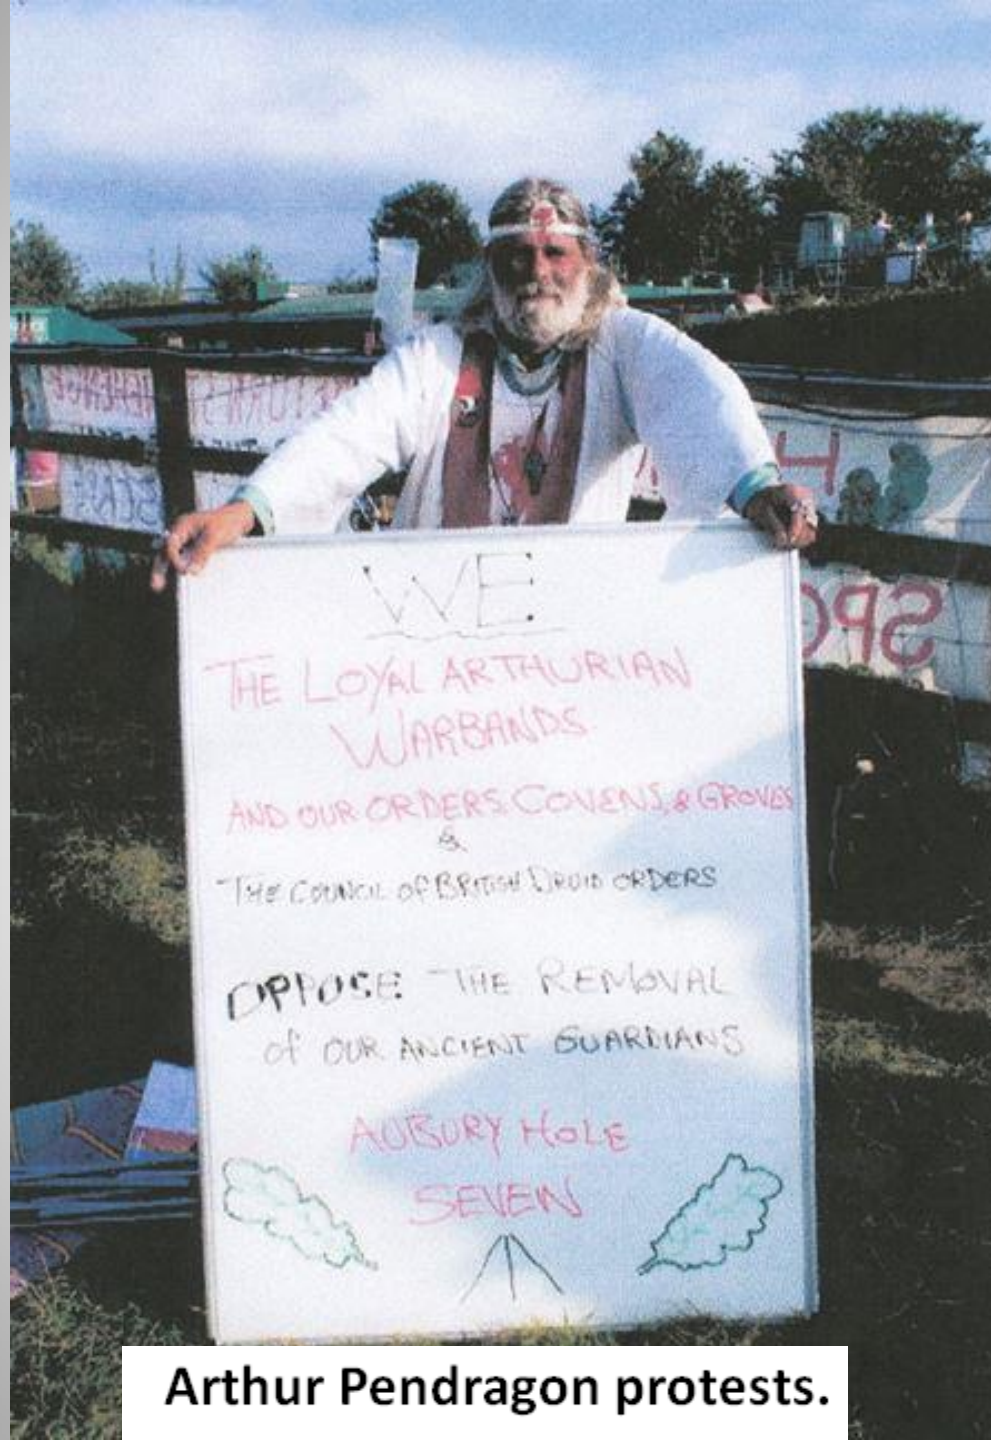 WE
THE LOYAL ARTHURIAN
WARBANDS
AND OUR ORDERS, COVENS, & GROVES
&
THE COUNCIL OF BRITISH DRUID ORDERS
OPPOSE THE REMOVAL
of OUR ANCIENT GUARDIANS
AUBURY HOLE
SEVEN
Arthur Pendragon protests.